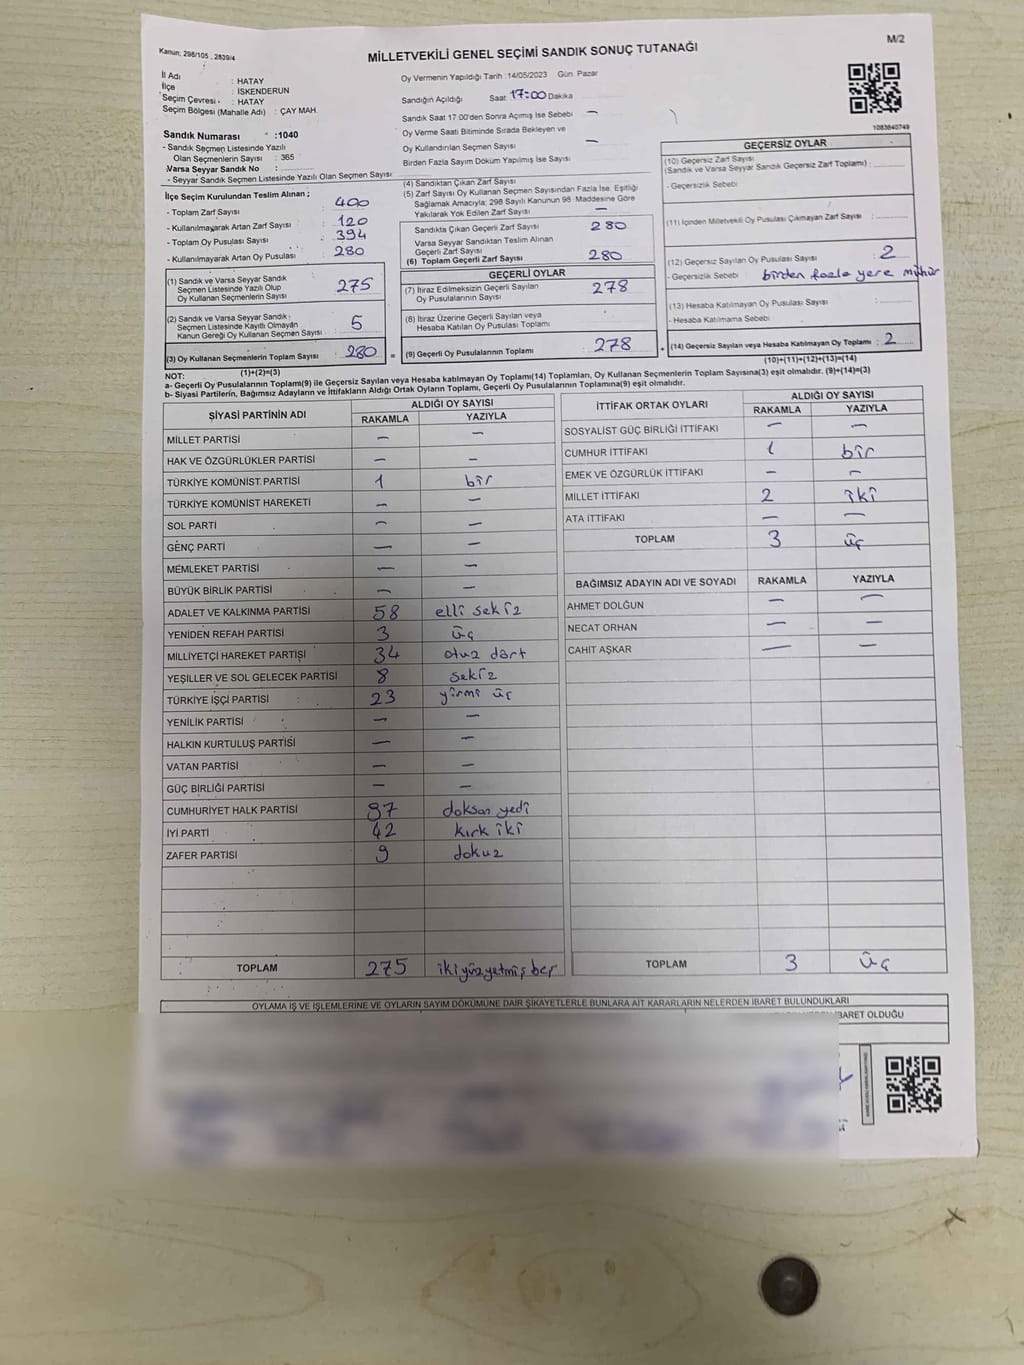 Kanun: 298/105 , 2839/4
MİLLETVEKİLİ GENEL SEÇİMİ SANDIK SONUÇ TUTANAĞI
M/2
İl Adı : HATAY
İlçe : İSKENDERUN
Seçim Çevresi : HATAY
Seçim Bölgesi (Mahalle Adı) : ÇAY MAH.
Sandık Numarası :1040
- Sandık Seçmen Listesinde Yazılı
Olan Seçmenlerin Sayısı : 365
Varsa Seyyar Sandık No :
- Seyyar Sandık Seçmen Listesinde Yazılı Olan Seçmen Sayısı
Oy Vermenin Yapıldığı Tarih :14/05/2023 Gün Pazar
Sandığın Açıldığı Saat 17:00 Dakika
Sandık Saat 17:00'den Sonra Açımış İse Sebebi —
Oy Verme Saati Bitiminde Sırada Bekleyen ve
Oy Kullandırılan Seçmen Sayısı —
Birden Fazla Sayım Döküm Yapılmış İse Sayısı
1083840749
İlçe Seçim Kurulundan Teslim Alınan ;
- Toplam Zarf Sayısı : 400
- Kullanılmayarak Artan Zarf Sayısı : 120
- Toplam Oy Pusulası Sayısı : 394
- Kullanılmayarak Artan Oy Pusulası : 280
(1) Sandık ve Varsa Seyyar Sandık
Seçmen Listesinde Yazılı Olup
Oy Kullanan Seçmenlerin Sayısı : 275
(2) Sandık ve Varsa Seyyar Sandık
Seçmen Listesinde Kayıtlı Olmayan
Kanun Gereği Oy Kullanan Seçmen Sayısı : 5
(3) Oy Kullanan Seçmenlerin Toplam Sayısı : 280
(1)+(2)=(3)
(4) Sandıktan Çıkan Zarf Sayısı
(5) Zarf Sayısı Oy Kullanan Seçmen Sayısından Fazla İse, Eşitliği
Sağlamak Amacıyla; 298 Sayılı Kanunun 98. Maddesine Göre
Yakılarak Yok Edilen Zarf Sayısı —
Sandıkta Çıkan Geçerli Zarf Sayısı 280
Varsa Seyyar Sandıktan Teslim Alınan
Geçerli Zarf Sayısı
(6) Toplam Geçerli Zarf Sayısı 280
GEÇERLİ OYLAR
(7) İtiraz Edilmeksizin Geçerli Sayılan
Oy Pusulalarının Sayısı 278
(8) İtiraz Üzerine Geçerli Sayılan veya
Hesaba Katılan Oy Pusulası Toplamı
= (9) Geçerli Oy Pusulalarının Toplamı 278
GEÇERSİZ OYLAR
(10) Geçersiz Zarf Sayısı
(Sandık ve Varsa Seyyar Sandık Geçersiz Zarf Toplamı) :
- Geçersizlik Sebebi
(11) İçinden Milletvekili Oy Pusulası Çıkmayan Zarf Sayısı :
(12) Geçersiz Sayılan Oy Pusulası Sayısı : 2
- Geçersizlik Sebebi birden fazla yere mühür
(13) Hesaba Katılmayan Oy Pusulası Sayısı :
- Hesaba Katılmama Sebebi
+ (14) Geçersiz Sayılan veya Hesaba Katılmayan Oy Toplamı : 2
(10)+(11)+(12)+(13)=(14)
NOT:
a- Geçerli Oy Pusulalarının Toplamı(9) ile Geçersiz Sayılan veya Hesaba katılmayan Oy Toplamı(14) Toplamları, Oy Kullanan Seçmenlerin Toplam Sayısına(3) eşit olmalıdır. (9)+(14)=(3)
b- Siyasi Partilerin, Bağımsız Adayların ve İttifakların Aldığı Ortak Oyların Toplamı, Geçerli Oy Pusulalarının Toplamına(9) eşit olmalıdır.
SİYASİ PARTİNİN ADI ALDIĞI OY SAYISI
RAKAMLA YAZIYLA
MİLLET PARTİSİ — —
HAK VE ÖZGÜRLÜKLER PARTİSİ — —
TÜRKİYE KOMÜNİST PARTİSİ 1 bir
TÜRKİYE KOMÜNİST HAREKETİ — —
SOL PARTİ — —
GENÇ PARTİ — —
MEMLEKET PARTİSİ — —
BÜYÜK BİRLİK PARTİSİ — —
ADALET VE KALKINMA PARTİSİ 58 elli sekiz
YENİDEN REFAH PARTİSİ 3 üç
MİLLİYETÇİ HAREKET PARTİSİ 34 otuz dört
YEŞİLLER VE SOL GELECEK PARTİSİ 8 sekiz
TÜRKİYE İŞÇİ PARTİSİ 23 yirmi üç
YENİLİK PARTİSİ — —
HALKIN KURTULUŞ PARTİSİ — —
VATAN PARTİSİ — —
GÜÇ BİRLİĞİ PARTİSİ — —
CUMHURİYET HALK PARTİSİ 97 doksan yedi
İYİ PARTİ 42 kırk iki
ZAFER PARTİSİ 9 dokuz
TOPLAM 275 ikiyüzyetmişbeş
İTTİFAK ORTAK OYLARI ALDIĞI OY SAYISI
RAKAMLA YAZIYLA
SOSYALİST GÜÇ BİRLİĞİ İTTİFAKI — —
CUMHUR İTTİFAKI 1 bir
EMEK VE ÖZGÜRLÜK İTTİFAKI — —
MİLLET İTTİFAKI 2 iki
ATA İTTİFAKI — —
TOPLAM 3 üç
BAĞIMSIZ ADAYIN ADI VE SOYADI RAKAMLA YAZIYLA
AHMET DOLĞUN — —
NECAT ORHAN — —
CAHİT AŞKAR — —
TOPLAM 3 üç
OYLAMA İŞ VE İŞLEMLERİNE VE OYLARIN SAYIM DÖKÜMÜNE DAİR ŞİKAYETLERLE BUNLARA AİT KARARLARIN NELERDEN İBARET BULUNDUKLARI
İBARET OLDUĞU